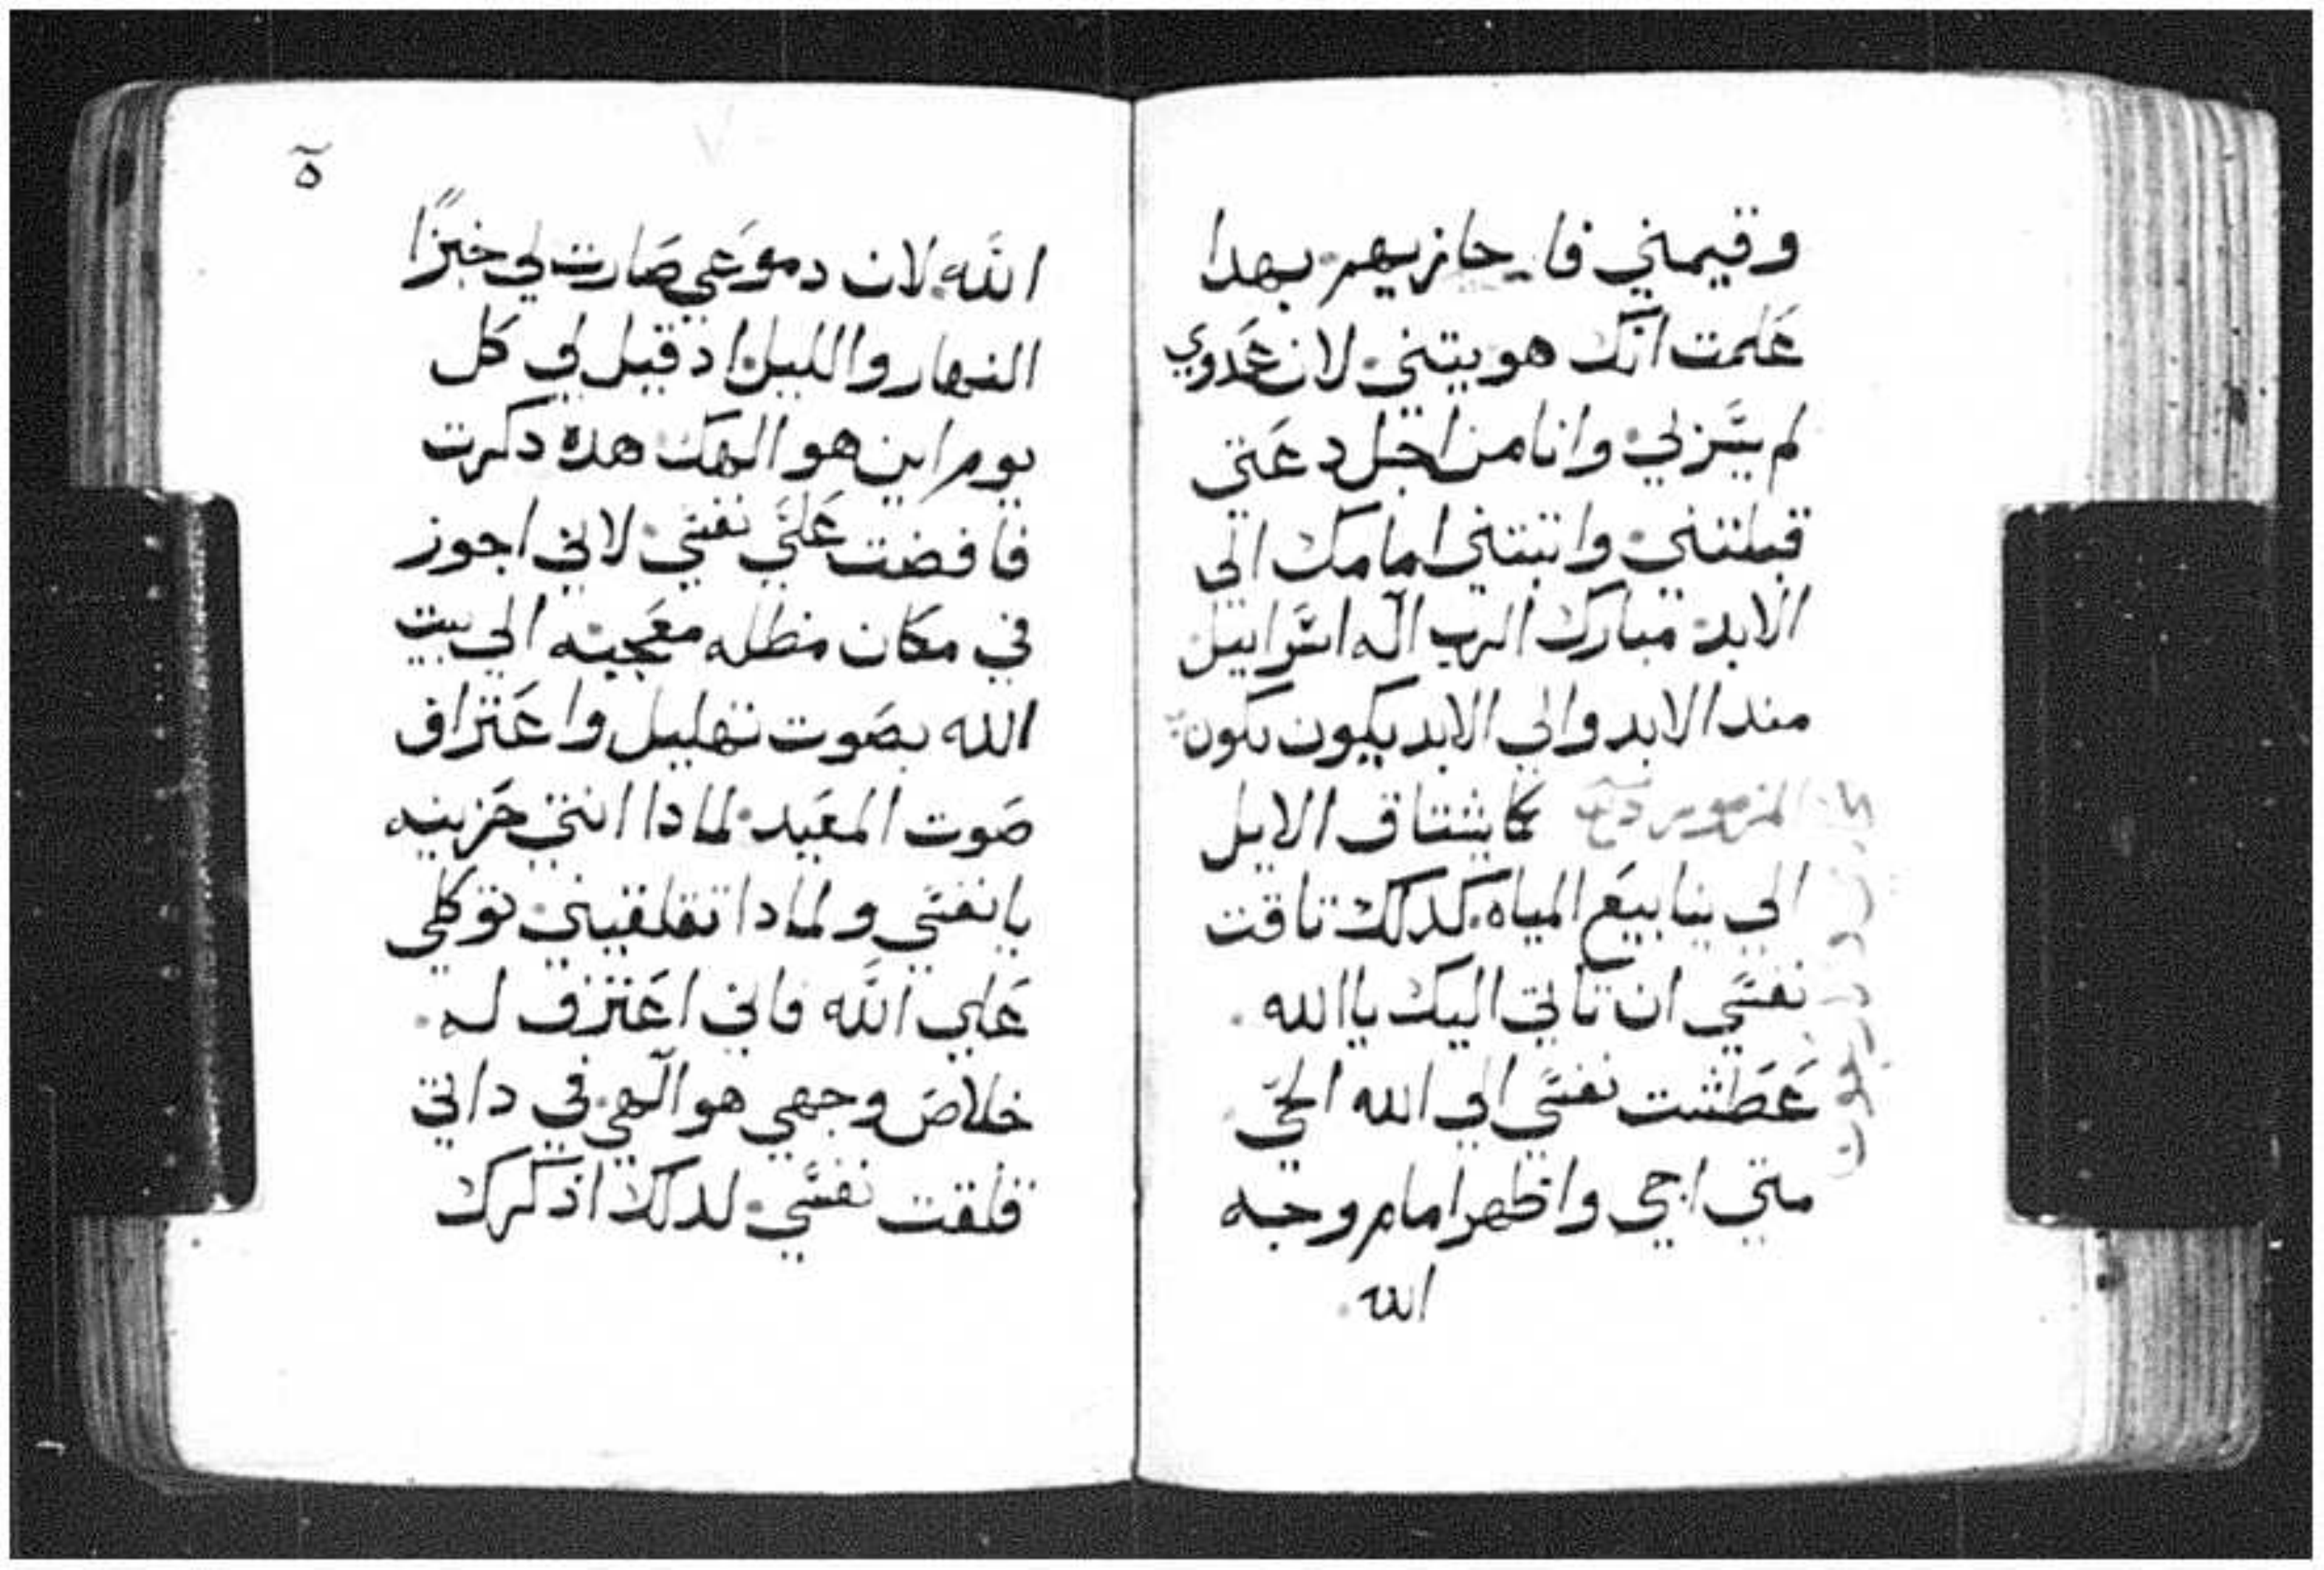 وقيمني فاجازيهم بهدا
علمت انك هويتني لان عدوي
لم يسر بي وانا من اجل دعتي
قبلتني واتبتني امامك الي
الابد مبارك الرب اله اسراييل
مند الابد والي الابد يكون يكون
المزمور كما يشتاق الايل
الي ينابيع المياه كدلك تاقت
نفسي ان تاتي اليك يا الله
عطشت نفسي الي الله الحي
متي اجي واظهر امام وجه
الله
ه
الله لان دموعي صارت لي خبزًا
النهار والليل اد قيل لي كل
يوم اين هو الهك هده دكرت
فافضت علي نفسي لاني اجوز
في مكان مظله معجبه الي بيت
الله بصوت تهليل واعتراف
صوت المعيد لمادا انتي حزينه
يا نفسي ولمادا تقلقيني توكلي
علي الله فاني اعترف له
خلاص وجهي هو الهي في داتي
قلقت نفسي لدلك ادكرك